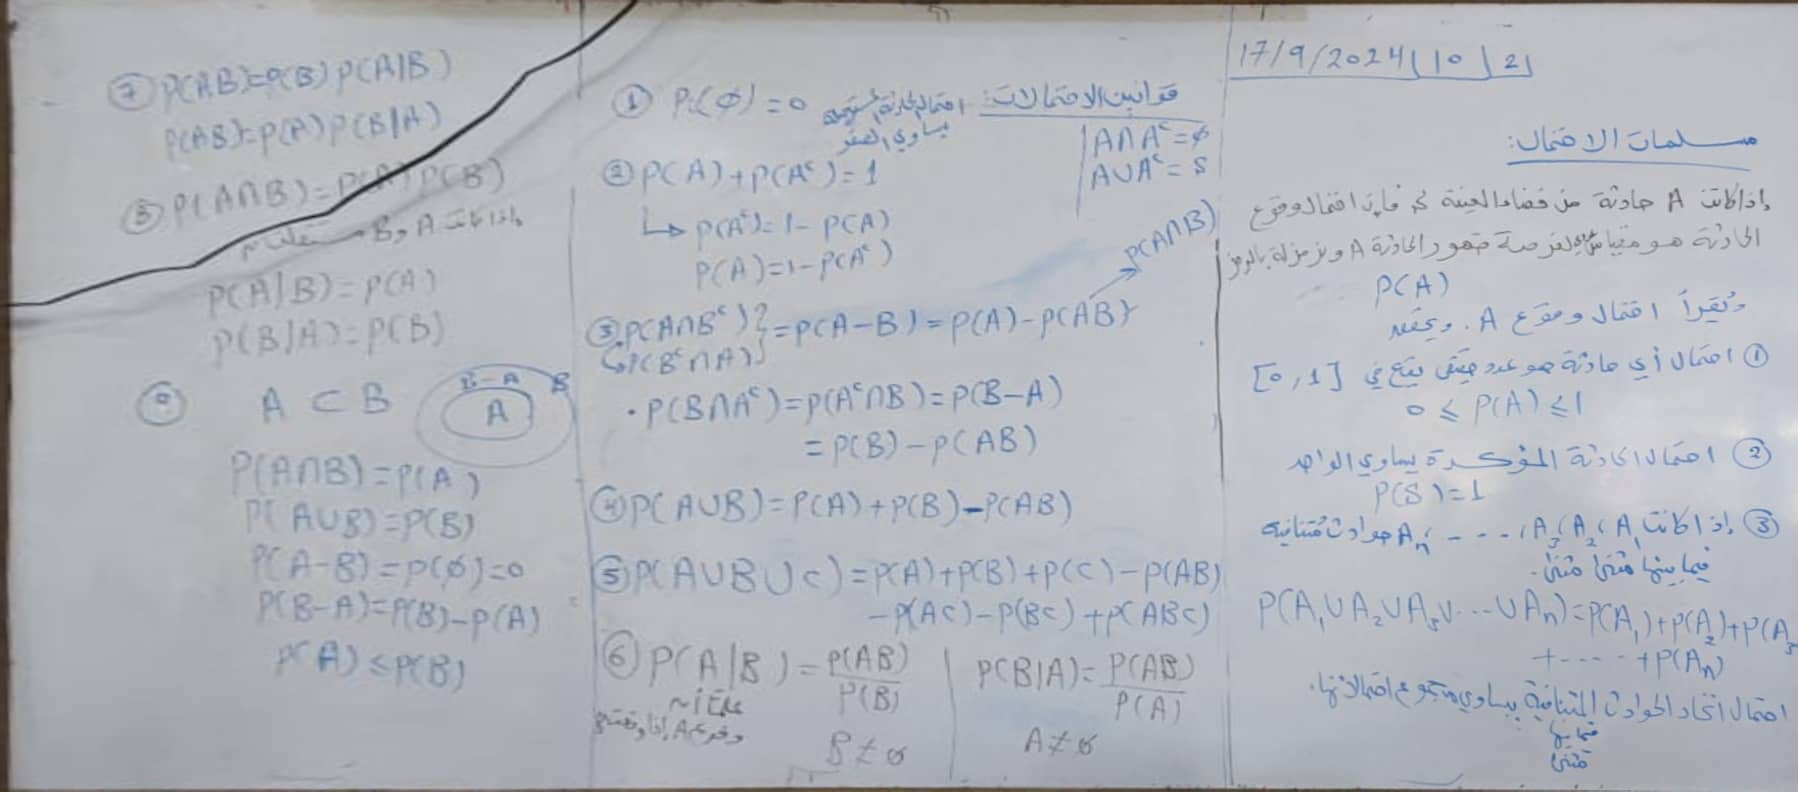 17/9/2024 | 10 | 21
مسلمات الاحتمال:
إذا كانت A حادثة من فضاء العينة فإن احتمال وقوع
الحادثة هو مقياس لفرصة ظهور الحادثة A ونرمز له بالرمز
P(A)
وتقرأ احتمال وقوع A. ويحقق
① احتمال أي حادثة هو عدد حقيقي يقع في [0,1]
0 ≤ P(A) ≤ 1
② احتمال الحادثة المؤكدة يساوي الواحد
P(S)=1
③ إذا كانت A₁, A₂, A₃, ...., Aₙ حوادث متنافية
فيما بينها مثنى مثنى.
P(A₁∪A₂∪A₃∪...∪Aₙ)=P(A₁)+P(A₂)+P(A₃
+.....+P(Aₙ)
احتمال اتحاد الحوادث المتنافية يساوي مجموع احتمالاتها.
فيما بينها
مثنى
قوانين الاحتمالات:
① P(∅)=0 احتمال الحادثة المستحيلة
يساوي الصفر
A∩Aᶜ=∅
A∪Aᶜ=S
② P(A)+P(Aᶜ)=1
↳ P(Aᶜ)=1-P(A)
P(A)=1-P(Aᶜ)
P(A∩B)
③ P(A∩Bᶜ)}=P(A-B)=P(A)-P(AB)
↳P(Bᶜ∩A)}
• P(B∩Aᶜ)=P(Aᶜ∩B)=P(B-A)
=P(B)-P(AB)
④ P(A∪B)=P(A)+P(B)-P(AB)
⑤ P(A∪B∪C)=P(A)+P(B)+P(C)-P(AB)
-P(AC)-P(BC)+P(ABC)
⑥ P(A|B)=P(AB)/P(B) | P(B|A)=P(AB)/P(A)
علماً أن
وقوع A إذا وقعت
B≠∅ A≠∅
⑦ P(AB)=P(B)P(A|B)
P(AB)=P(A)P(B|A)
⑧ P(A∩B)=P(A)P(B)
إذا كانت A و B مستقلتان
P(A|B)=P(A)
P(B|A)=P(B)
⑨ A⊂B
B-A B
A
P(A∩B)=P(A)
P(A∪B)=P(B)
P(A-B)=P(∅)=0
P(B-A)=P(B)-P(A)
P(A)≤P(B)